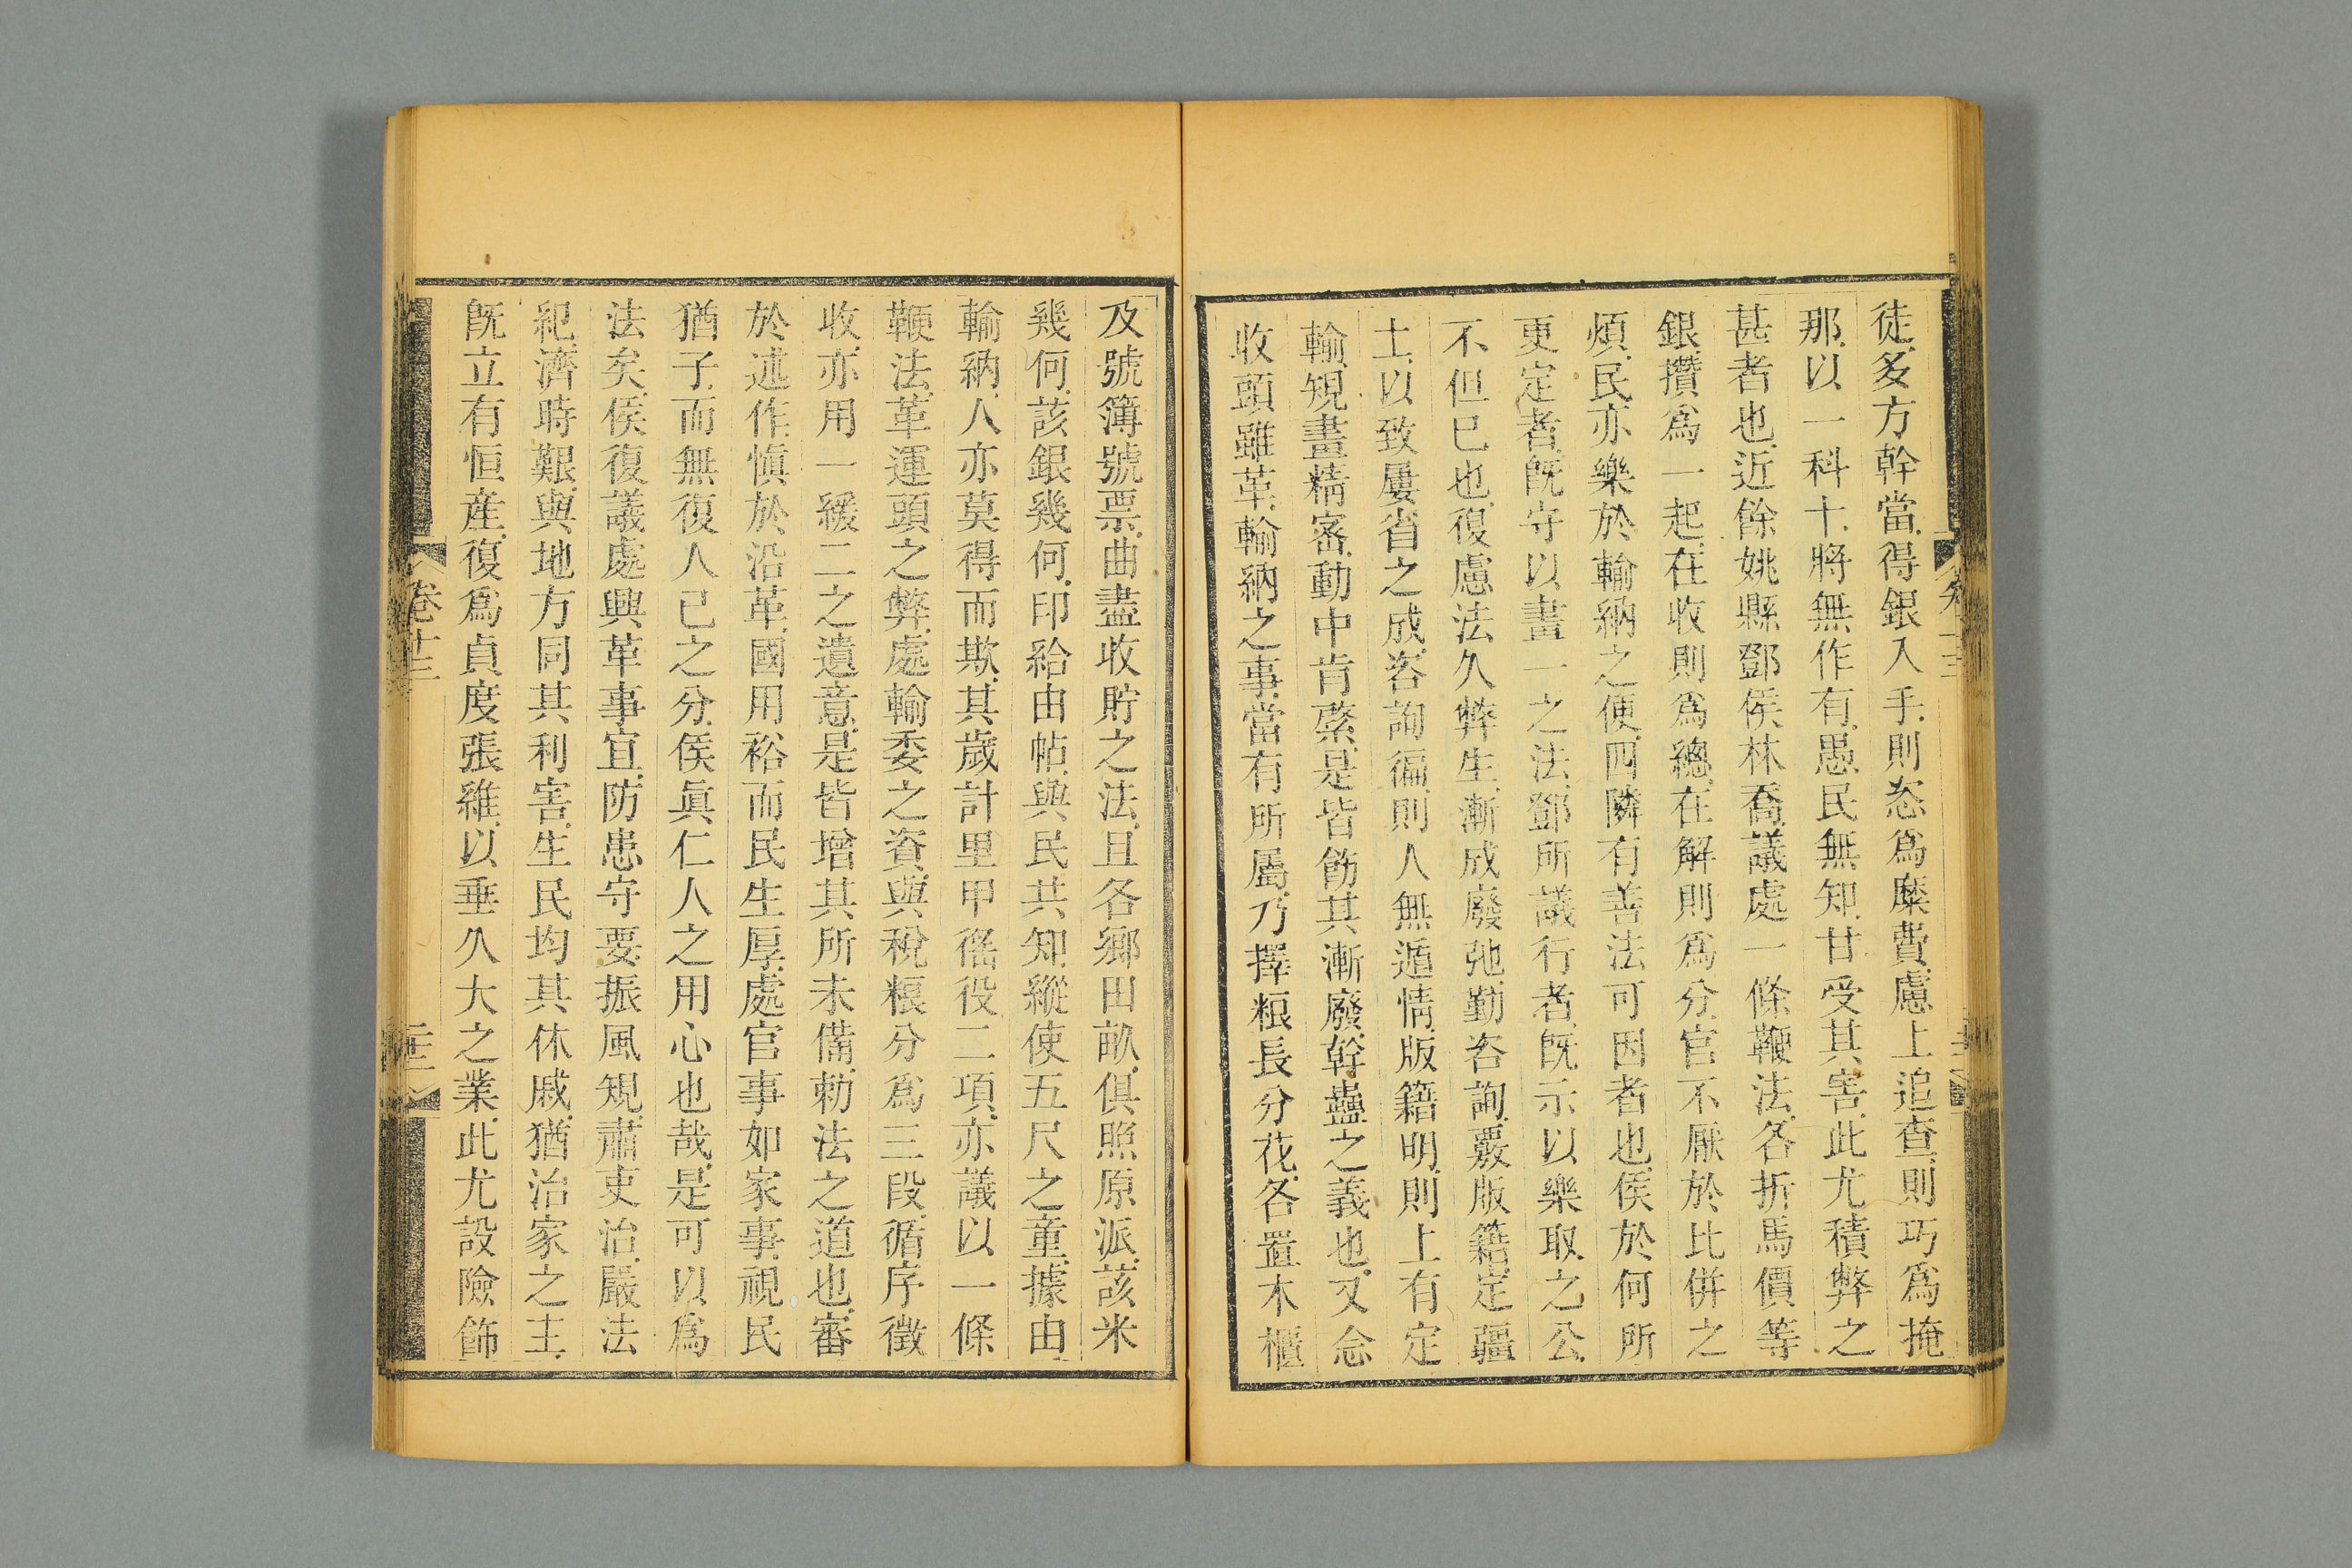 徒多方幹當得銀入手則恣爲糜費慮上追查則巧爲掩
那以一科十將無作有愚民無知甘受其害此尤積弊之
甚者也近餘姚縣鄧侯林喬議處一條鞭法各折馬價等
銀攢爲一起在收則爲總在解則爲分官不厭於比併之
煩民亦樂於輸納之便四隣有善法可因者也侯於何所
更定者旣守以畫一之法鄧所議行者旣示以樂取之公
不但已也復慮法久弊生漸成廢弛勤咨詢覈版籍定疆
土以致屢省之成咨詢徧則人無遁情版籍明則上有定
輸規畫精密動中肯綮是皆飭其漸廢幹蠱之義也又念
收頭雖革輸納之事當有所屬乃擇粮長分花各置木櫃
及號簿號票曲盡收貯之法且各鄉田畝俱照原派該米
幾何該銀幾何印給由帖與民共知縱使五尺之童據由
輸納人亦莫得而欺其歲計里甲徭役二項亦議以一條
鞭法革運頭之弊處輸委之資與稅粮分爲三段循序徵
收亦用一緩二之遺意是皆增其所未備勑法之道也審
於述作慎於沿革國用裕而民生厚處官事如家事視民
猶子而無復人已之分侯眞仁人之用心也哉是可以爲
法矣侯復議處興革事宜防患守要振風規肅吏治嚴法
紀濟時艱與地方同其利害生民均其休戚猶治家之主
旣立有恒産復爲貞度張維以垂久大之業此尤設險飾
卷十三